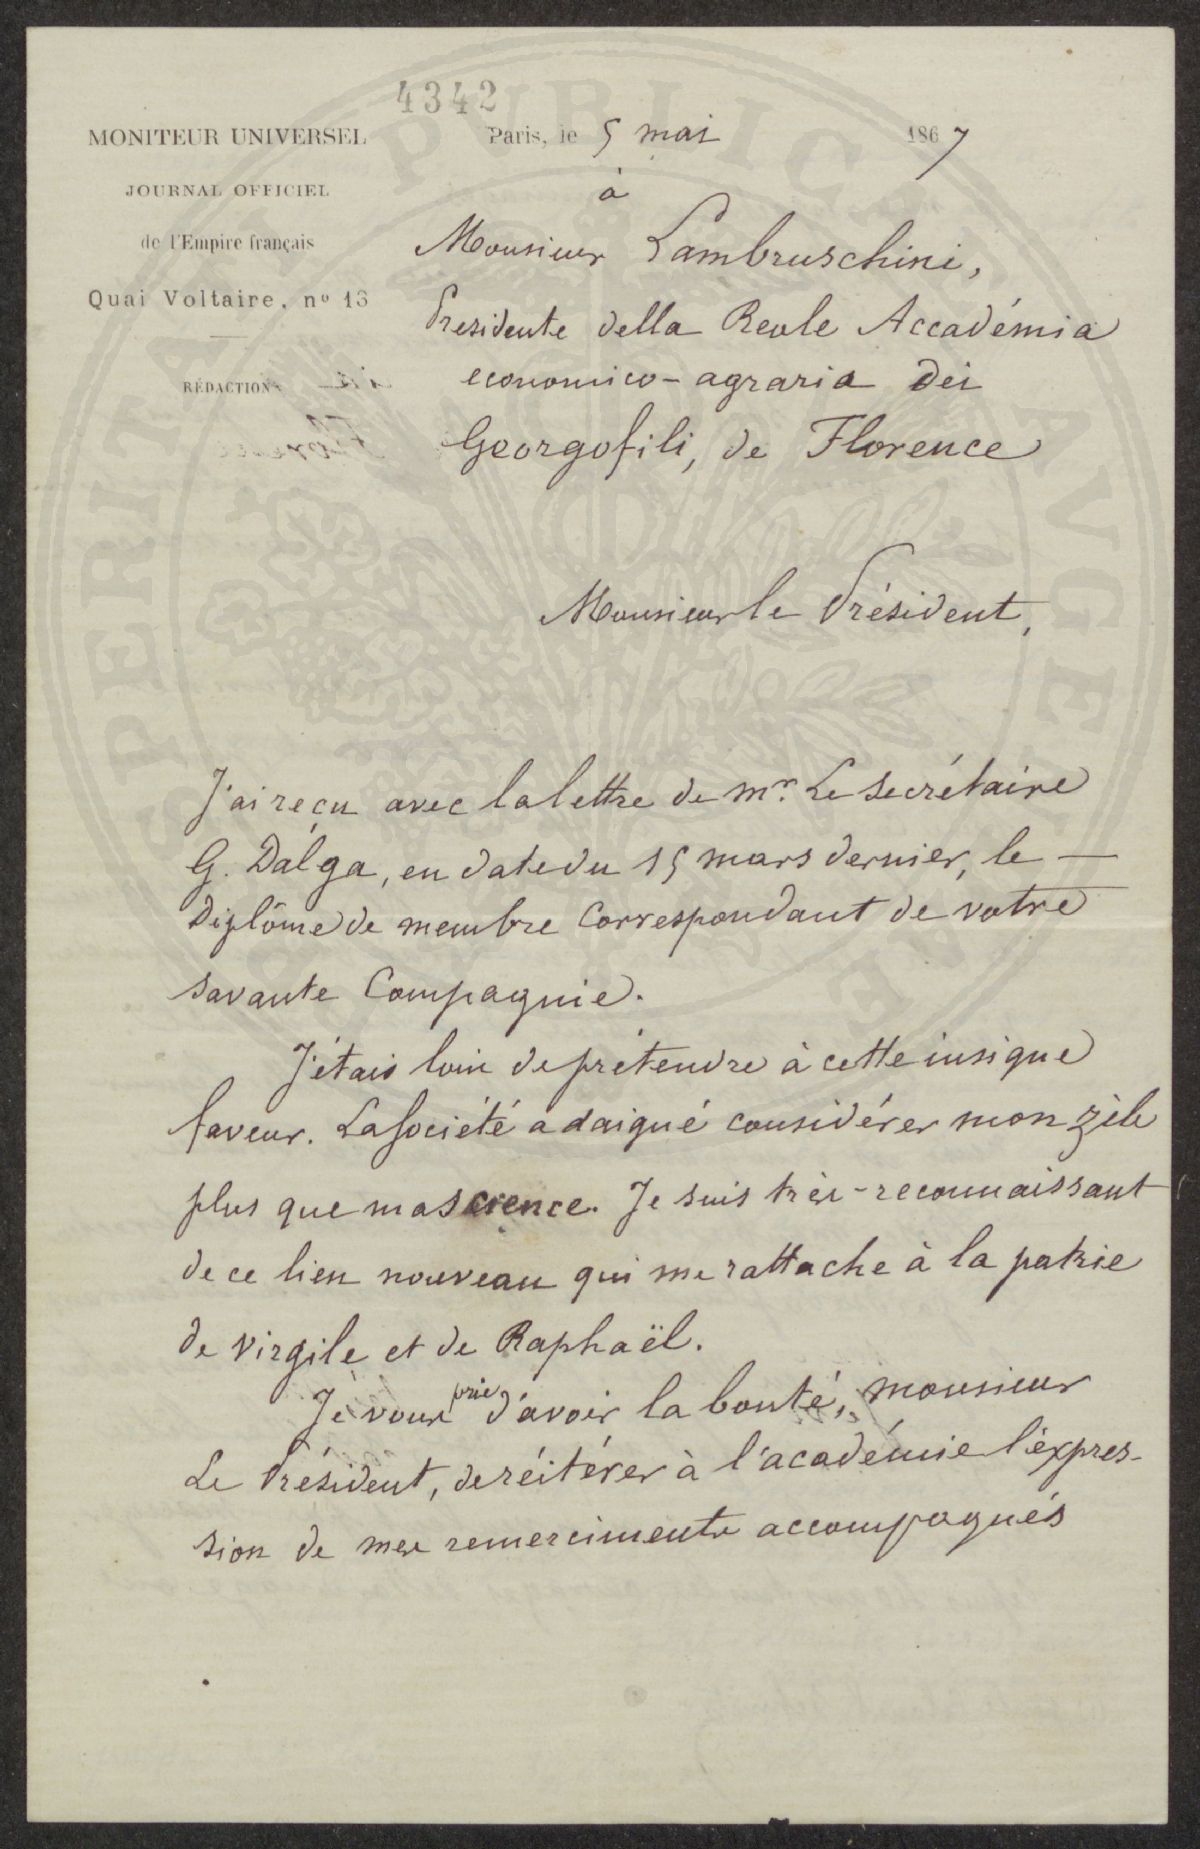 4342
MONITEUR UNIVERSEL
JOURNAL OFFICIEL
de l'Empire français
Quai Voltaire, nº 13
RÉDACTION
Paris, le 5 mai 1867
à
Monsieur Lambruschini,
Presidente della Reale Accadémia
economico-agraria dei
Georgofili, de Florence
Monsieur le Président,
J'ai reçu avec la lettre de mr. Le Secrétaire
G. Dalga, en date du 15 mars dernier, le —
Diplôme de membre Correspondant de votre
savante Compagnie.
J'étais loin de prétendre à cette insigne
faveur. La Société a daigné considérer mon zèle
plus que ma science. Je suis très-reconnaissant
de ce lien nouveau qui me rattache à la patrie
de Virgile et de Raphaël.
Je vous prie d'avoir la bonté, monsieur
Le Président, de réitérer à l'académie l'expres-
sion de mes remerciments accompagnés
SPERITATI PUBLICAE AUGENDAE